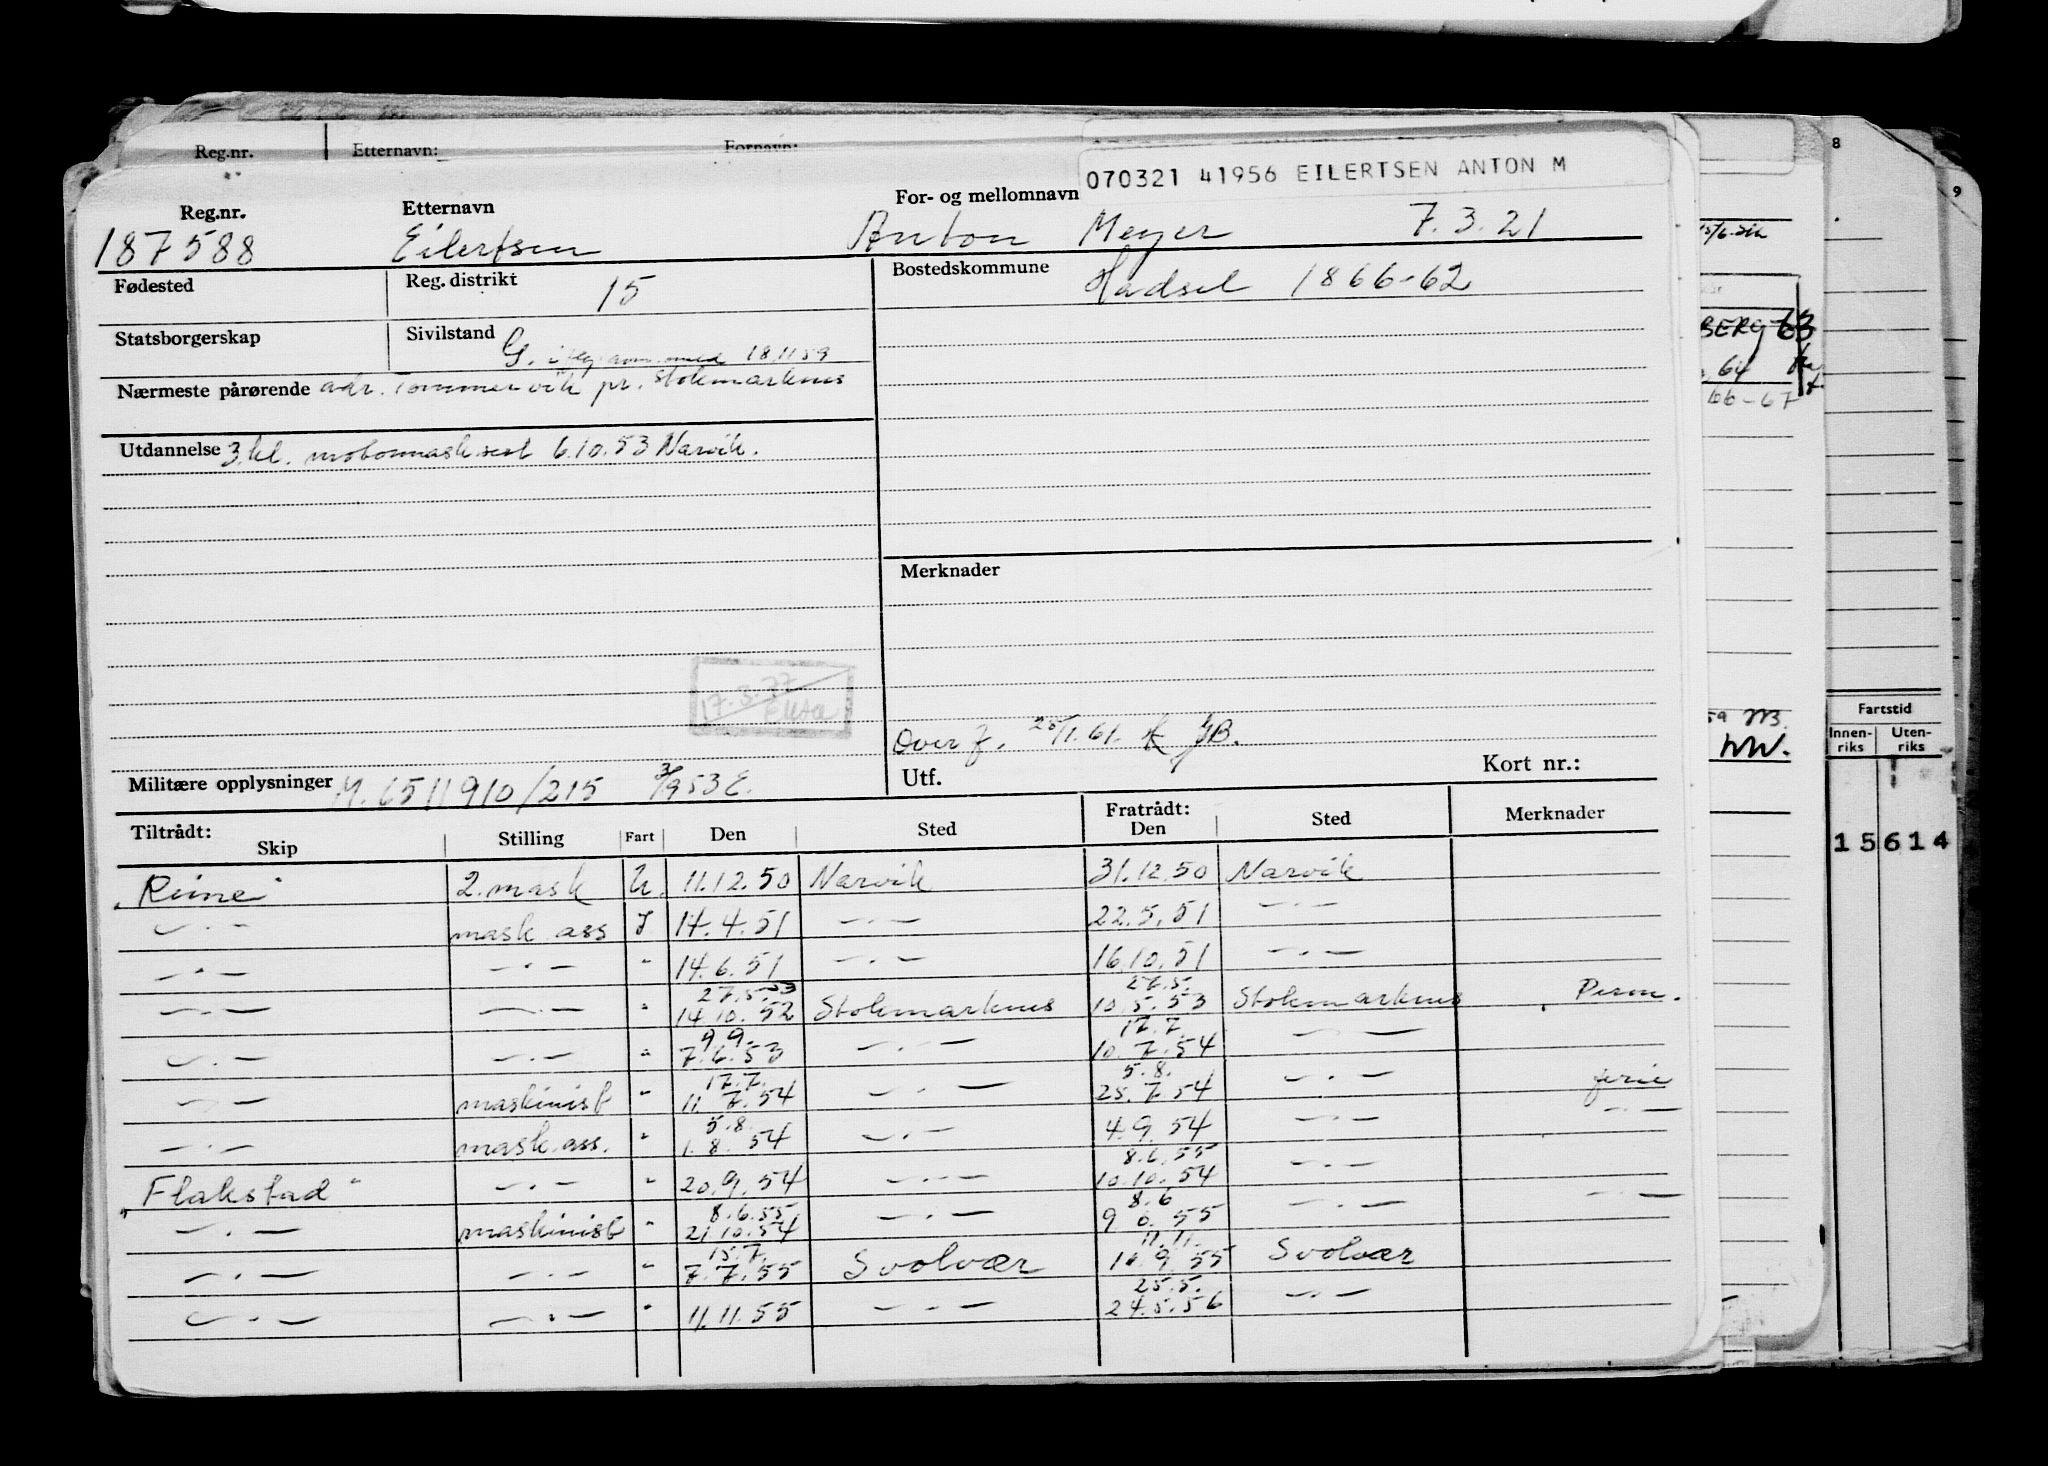 Reg.nr. Etternavn: Fornavn:
070321 41956 EILERTSEN ANTON M
Reg.nr. Etternavn For- og mellomnavn
187588 Eilertsen Anton Meyer 7.3.21
Fødested Reg. distrikt 15 Bostedskommune Hadsel 1866-62
Statsborgerskap Sivilstand G. 18.11.59
Nærmeste pårørende adr. Tommervik pr. Stokmarknes
Utdannelse 3.kl. motormask.sert 6.10.53 Narvik.
Merknader
17.3.77
Overf. 25/1.61. JB.
Utf. Kort nr.:
Militære opplysninger M. 6511910/215 3/9 53 E.
Tiltrådt: Skip Stilling Fart Den Sted Fratrådt: Den Sted Merknader
"Reine" 2. mask U. 11.12.50 Narvik 31.12.50 Narvik
—·— mask ass J 14.4.51 —·— 22.5.51 —·—
—·— —·— " 14.6.51 —·— 16.10.51 —·—
27.5.53 27.5.
—·— —·— " 14.10.52 Stokmarknes 10.5.53 Stokmarknes Perm.
9.9. 17.7.
—·— —·— " 7.6.53 —·— 10.7.54 —·—
17.7. 5.8.
—·— maskinist " 11.7.54 —·— 25.7.54 —·— ferie
5.8.
—·— mask.ass. " 1.8.54 —·— 4.9.54 —·— —·—
8.6.55
"Flakstad" —·— " 20.9.54 —·— 10.10.54 —·—
8.6.55 8.6
—·— maskinist " 21.10.54 —·— 9.6.55 —·— —·—
15.7. 11.11.
—·— —·— " 7.7.55 Svolvær 10.9.55 Svolvær
25.5.
—·— —·— " 11.11.55 —·— 24.5.56 —·—
8
9
BERG 63
64
66-67
Fartstid
Innen-riks Uten-riks
15614